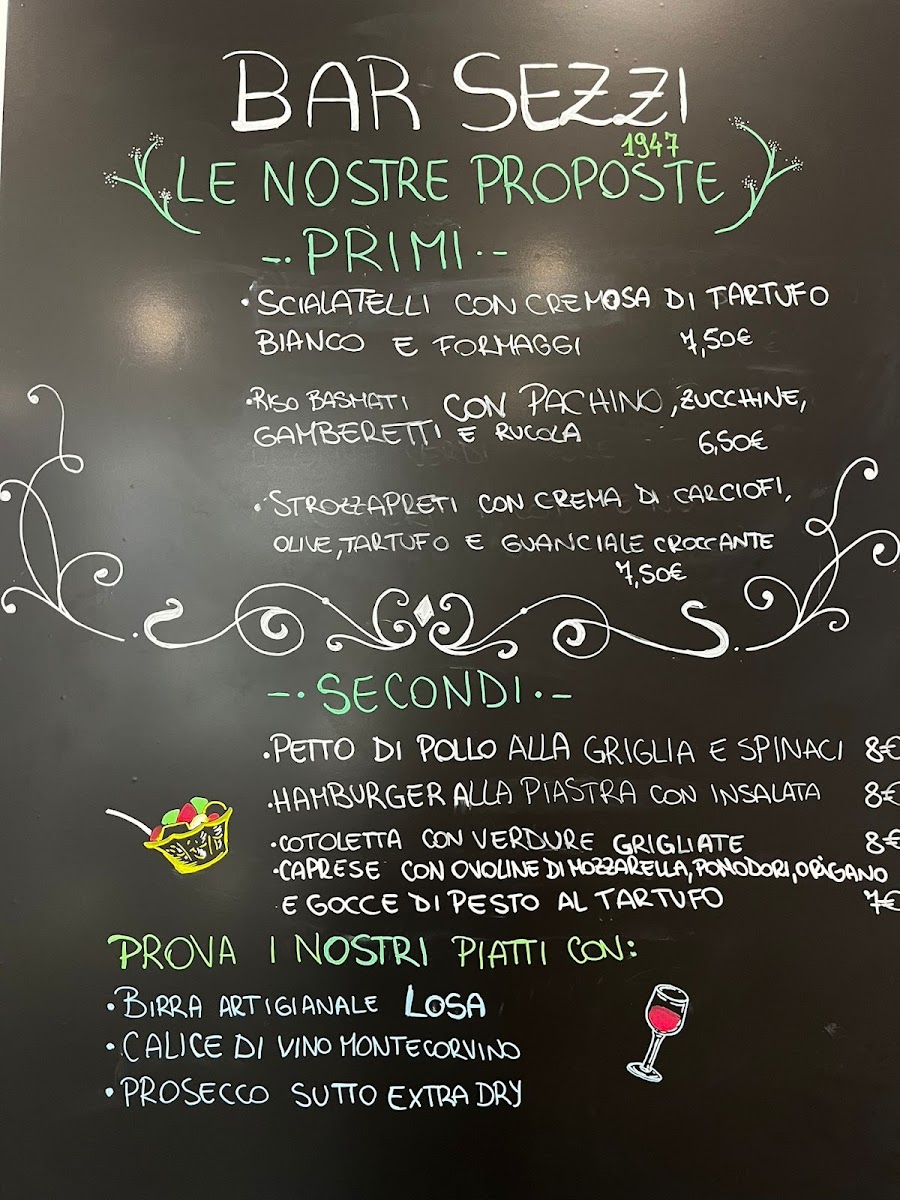 BAR SEZZI
1947
LE NOSTRE PROPOSTE
-.PRIMI.-
•SCIALATELLI CON CREMOSA DI TARTUFO
BIANCO E FORMAGGI 7,50€
•RISO BASMATI CON PACHINO, ZUCCHINE,
GAMBERETTI E RUCOLA 6,50€
•STROZZAPRETI CON CREMA DI CARCIOFI,
OLIVE, TARTUFO E GUANCIALE CROCCANTE
7,50€
-.SECONDI.-
•PETTO DI POLLO ALLA GRIGLIA E SPINACI 8€
•HAMBURGER ALLA PIASTRA CON INSALATA 8€
•COTOLETTA CON VERDURE GRIGLIATE 8€
•CAPRESE CON OVOLINE DI MOZZARELLA, POMODORI, ORIGANO
E GOCCE DI PESTO AL TARTUFO 7€
PROVA I NOSTRI PIATTI CON:
•BIRRA ARTIGIANALE LOSA
•CALICE DI VINO MONTECORVINO
•PROSECCO SUTTO EXTRA DRY